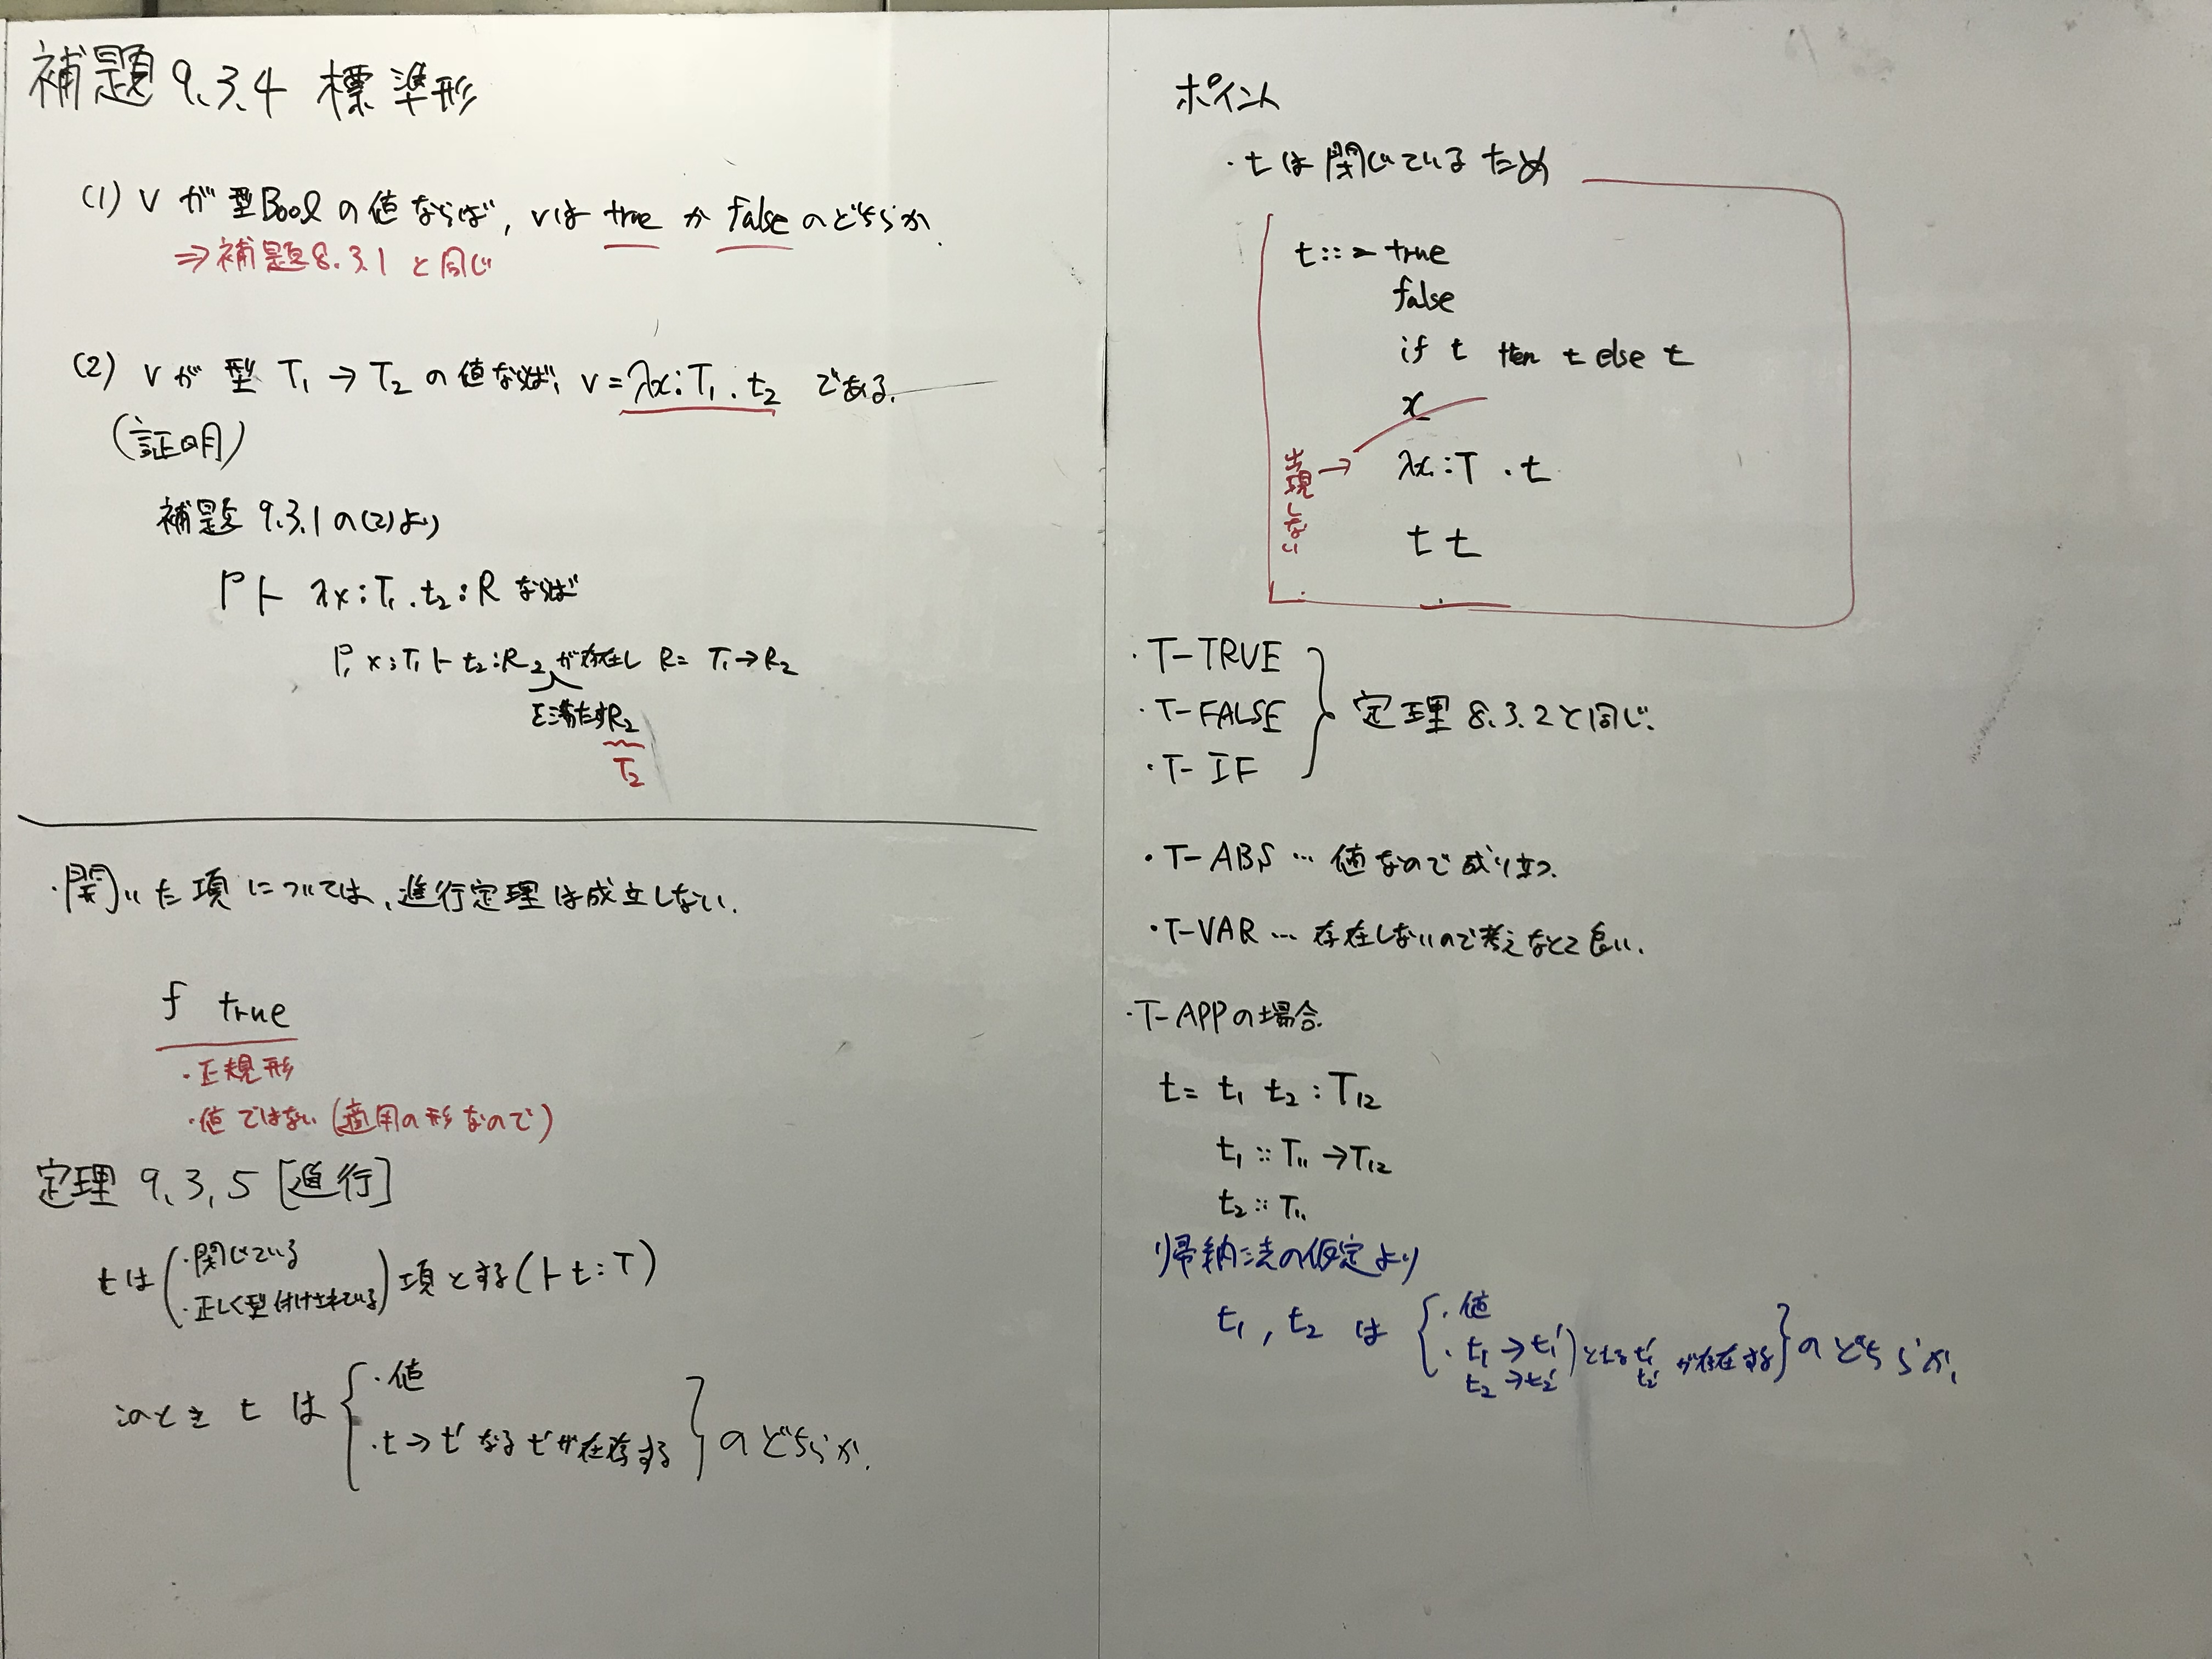 補題 9.3.4 標準形
(1) v が 型Bool の値ならば, vは true か false のどちらか.
⇒補題8.3.1 と同じ
(2) v が 型 T₁ → T₂ の値ならば, v = λx:T₁.t₂ である.
(証明)
補題 9.3.1 の(2)より
Γ ⊢ λx:T₁.t₂:R ならば
Γ, x:T₁ ⊢ t₂:R₂ が存在し R = T₁→R₂
を満たすR₂
T₂
・開いた項については、進行定理は成立しない.
f true
・正規形
・値ではない (適用の形なので)
定理 9.3.5 [進行]
tは (・閉じている
・正しく型付けされている) 項とする(⊢ t:T)
このとき t は { ・値
・t → t′ なる t′が存在する } のどちらか.
ポイント
・t は 閉じているため
t ::= true
false
if t then t else t
x
出現しない →
λx:T .t
t t
・T-TRUE
・T-FALSE } 定理 8.3.2と同じ.
・T-IF
・T-ABS … 値なので成り立つ.
・T-VAR … 存在しないので考えなくて良い.
・T-APPの場合.
t = t₁ t₂ : T₁₂
t₁ :: T₁₁ → T₁₂
t₂ :: T₁₁
帰納法の仮定より
t₁, t₂ は { ・値
・t₁ → t₁′ ) となる t₁′ が存在する } のどちらか.
t₂ → t₂′ t₂′